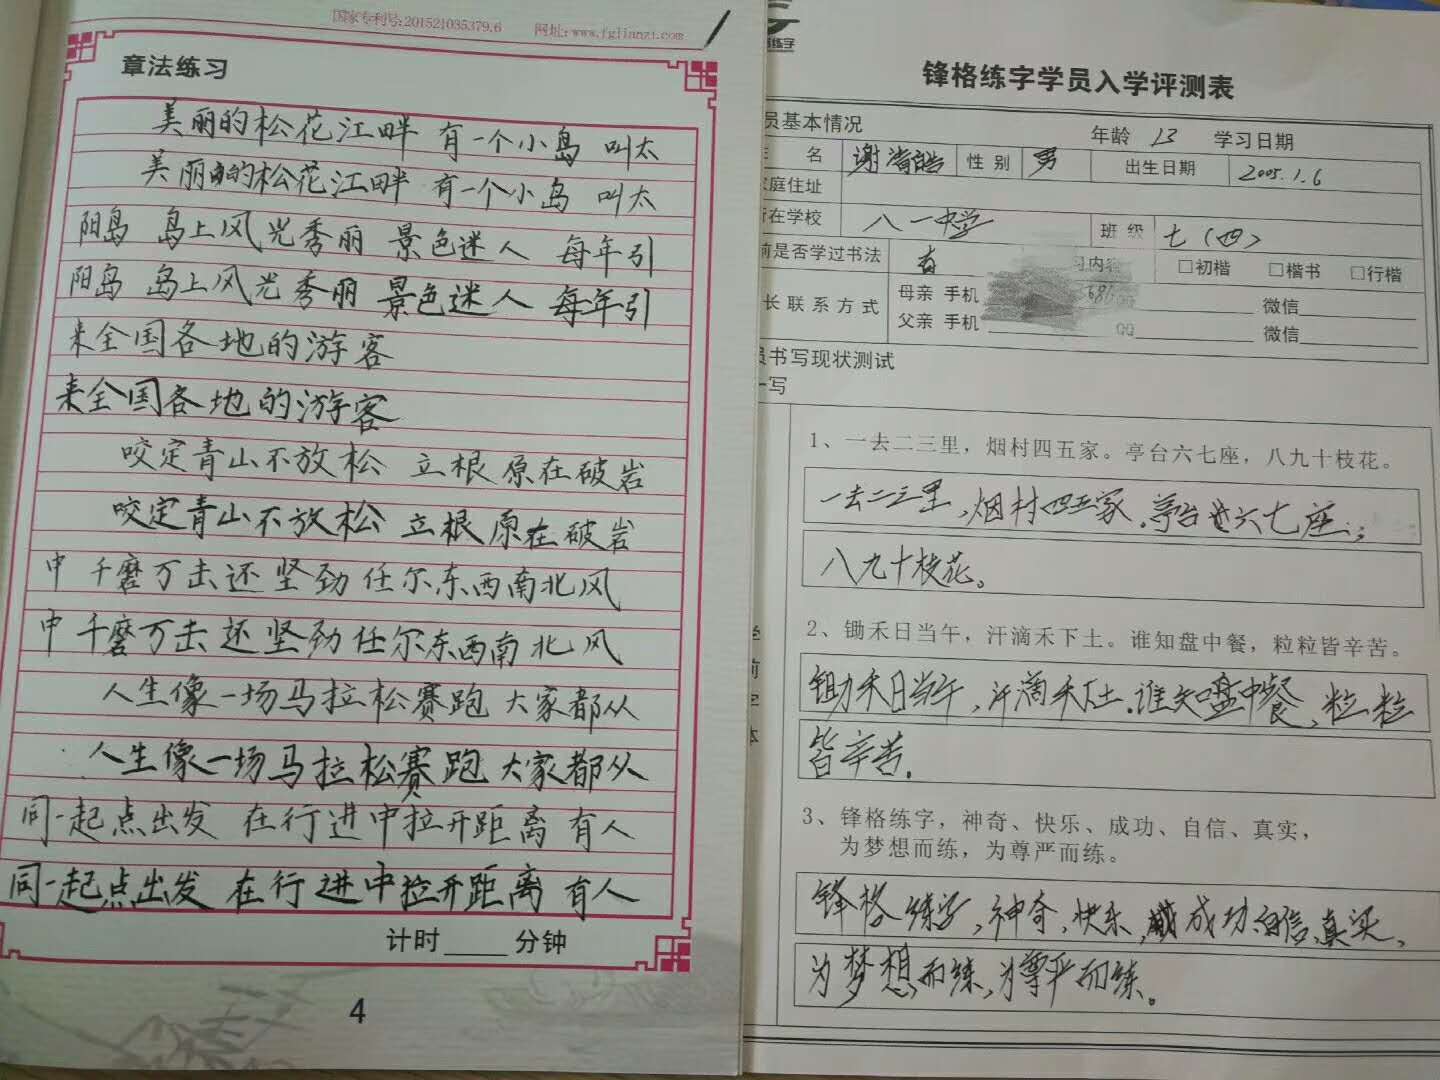 国家专利号:201521035379.6 网址:www.fglianzi.com
章法练习
美丽的松花江畔 有一个小岛 叫太
美丽的松花江畔 有一个小岛 叫太
阳岛 岛上风光秀丽 景色迷人 每年引
阳岛 岛上风光秀丽 景色迷人 每年引
来全国各地的游客
来全国各地的游客
咬定青山不放松 立根原在破岩
咬定青山不放松 立根原在破岩
中 千磨万击还坚劲 任尔东西南北风
中 千磨万击还坚劲 任尔东西南北风
人生像一场马拉松赛跑 大家都从
人生像一场马拉松赛跑 大家都从
同一起点出发 在行进中拉开距离 有人
同一起点出发 在行进中拉开距离 有人
计时 分钟
4
练字
锋格练字学员入学评测表
员基本情况 年龄 13 学习日期
名 谢 皓 性别 男 出生日期 2005.1.6
家庭住址
所在学校 八一中学 班级 七(四)
前是否学过书法 否 习内容 □初楷 □楷书 □行楷
长联系方式 母亲 手机 微信
父亲 手机 QQ 微信
员书写现状测试
一写
1、一去二三里，烟村四五家。亭台六七座，八九十枝花。
一去二三里,烟村四五家.亭台六七座,
八九十枝花。
2、锄禾日当午，汗滴禾下土。谁知盘中餐，粒粒皆辛苦。
锄禾日当午,汗滴禾下土.谁知盘中餐,粒粒
皆辛苦.
3、锋格练字，神奇、快乐、成功、自信、真实，
为梦想而练，为尊严而练。
锋格练字,神奇,快乐,成功,自信,真实,
为梦想而练,为尊严而练。
学
前
字
体